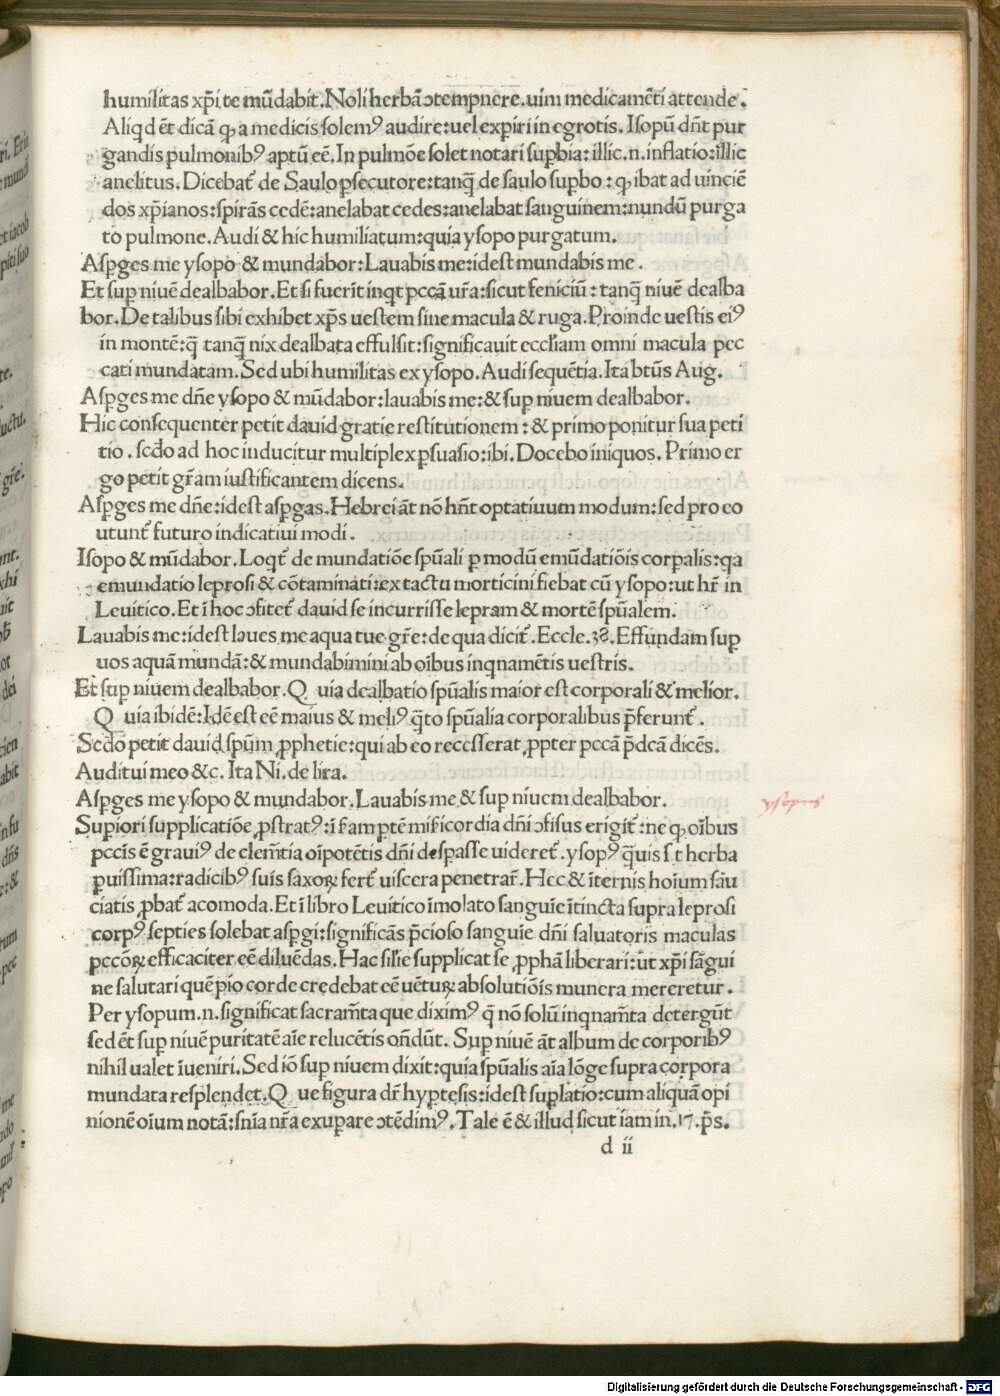 humilitas xp̄i te mūdabit. Noli herbā ↄtempnere. uim medicamēti attende.
Aliqd ēt dicā ꝙ a medicis solemꝰ audire: uel expiri in egrotis. Isopū dn̄t pur
gandis pulmonibꝰ aptū eē. In pulmōe solet notari supbia: illic .n. inflatio: illic
anelitus. Dicebat̄ de Saulo ꝑsecutore: tanq̄ de saulo supbo: ꝙ ibat ad uinciē
dos xp̄ianos: spirās cedē: anelabat cedes: anelabat sanguinem: nundū purga
to pulmone. Audi & hic humiliatum: quia ysopo purgatum.
Asꝑges me ysopo & mundabor: Lauabis me: idest mundabis me.
Et sup niuē dealbabor. Et si fuerīt inqt pccā ur̄a: sicut feniciū: tanq̄ niuē dealba
bor. De talibus sibi exhibet xp̄s uestem sine macula & ruga. Proinde uestis eiꝰ
in montē: q̄ tanq̄ nix dealbata effulsit: significauit eccl̄iam omni macula pec
cati mundatam. Sed ubi humilitas ex ysopo. Audi sequētia. Ita btūs Aug.
Asꝑges me dn̄e ysopo & mūdabor: lauabis me: & sup niuem dealbabor.
Hic consequenter petit dauid gratie restitutionem: & primo ponitur sua peti
tio. scd̄o ad hoc inducitur multiplex ꝑsuasio: ibi. Docebo iniquos. Primo er
go petit gr̄am iustificantem dicens.
Asꝑges me dn̄e: idest asꝑgas. Hebrei āt nō hn̄t optatiuum modum: sed pro eo
utunt̄ futuro indicatiui modi.
Isopo & mūdabor. Loqt̄ de mundatiōe spūali ꝑ modū emūdatiōis corꝑalis: qa
emundatio leprosi & cōtaminati: ex tactu morticini fiebat cū ysopo: ut hr̄ in
Leuitico. Et ī hoc ↄfitet̄ dauid se incurrisse lepram & mortē spūalem.
Lauabis me: idest laues me aqua tue gr̄e: de qua dicit̄. Eccle. 38. Effundam sup
uos aquā mundā: & mundabimini ab oībus inqnamētis uestris.
Et sup niuem dealbabor. Q uia dealbatio spūalis maior est corporali & melior.
Q uia ibidē: Idē est eē maius & meliꝰ q̄to spūalia corporalibus p̄ferunt̄.
Sed̄o petit dauid spūm ꝓphetie: qui ab eo recesserat ꝓpter pccā p̄dcā dicēs.
Auditui meo &c. Ita Ni. de lira.
Asꝑges me ysopo & mundabor. Lauabis me & sup niuem dealbabor.
Supiori supplicatiōe ꝓstratꝰ: ī hāc ꝑtē misericordia dn̄i ↄfisus erigit̄: ne ꝙ oībus
pccīs ē grauiꝰ de clem̄tia oīpotētis dn̄i desꝑasse uideret̄. ysopꝰ q̄uis s t herba
puissima: radicibꝰ suis saxoꝝ fert̄ uiscera penetrar̄. Hec & īternis hoīum sāu
ciatis ꝓbat̄ acomoda. Et ī libro Leuitico īmolato sanguīe ītincta supra leprosi
corpꝰ septies solebat asꝑgi: significās p̄cioso sanguīe dn̄i saluatoris maculas
pccōꝝ efficaciter eē diluēdas. Hac sil̄ie supplicat se ꝓphā liberari: ut xp̄i sāgui
ne salutari quē pio corde credebat eē uētuꝝ absolutiōis munera mereretur.
Per ysopum .n. significat sacram̄ta que diximꝰ q̄ nō solū inqnam̄ta detergūt
sed ēt sup niuē puritatē aīe relucētis on̄dūt. Sup niuē āt album de corporibꝰ
nihil ualet īueniri. Sed iō sup niuem dixit: quia spūalis aīa lōge supra corpora
mundara resplendet. Q ue figura dr̄ hyptesis: idest suplatio: cum aliquā opi
nionē oīum notā: sn̄ia nr̄a exupare ↄtēdimꝰ. Tale ē & illud sicut iam in .17. p̄s.
d ii
Digitalisierung gefördert durch die Deutsche Forschungsgemeinschaft - DFG